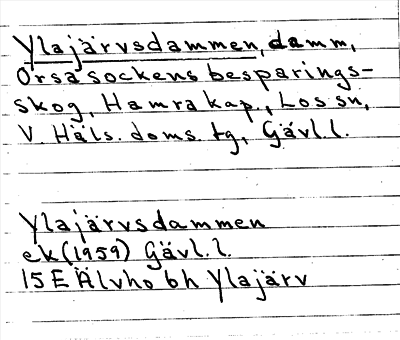 Ylajärvsdammen, damm,
Orsa sockens besparings-
skog, Hamra kap., Los sn,
V. Häls. doms. tg, Gävl. l.
Ylajärvsdammen
ek (1959) Gävl. l.
15E Älvho bh Ylajärv